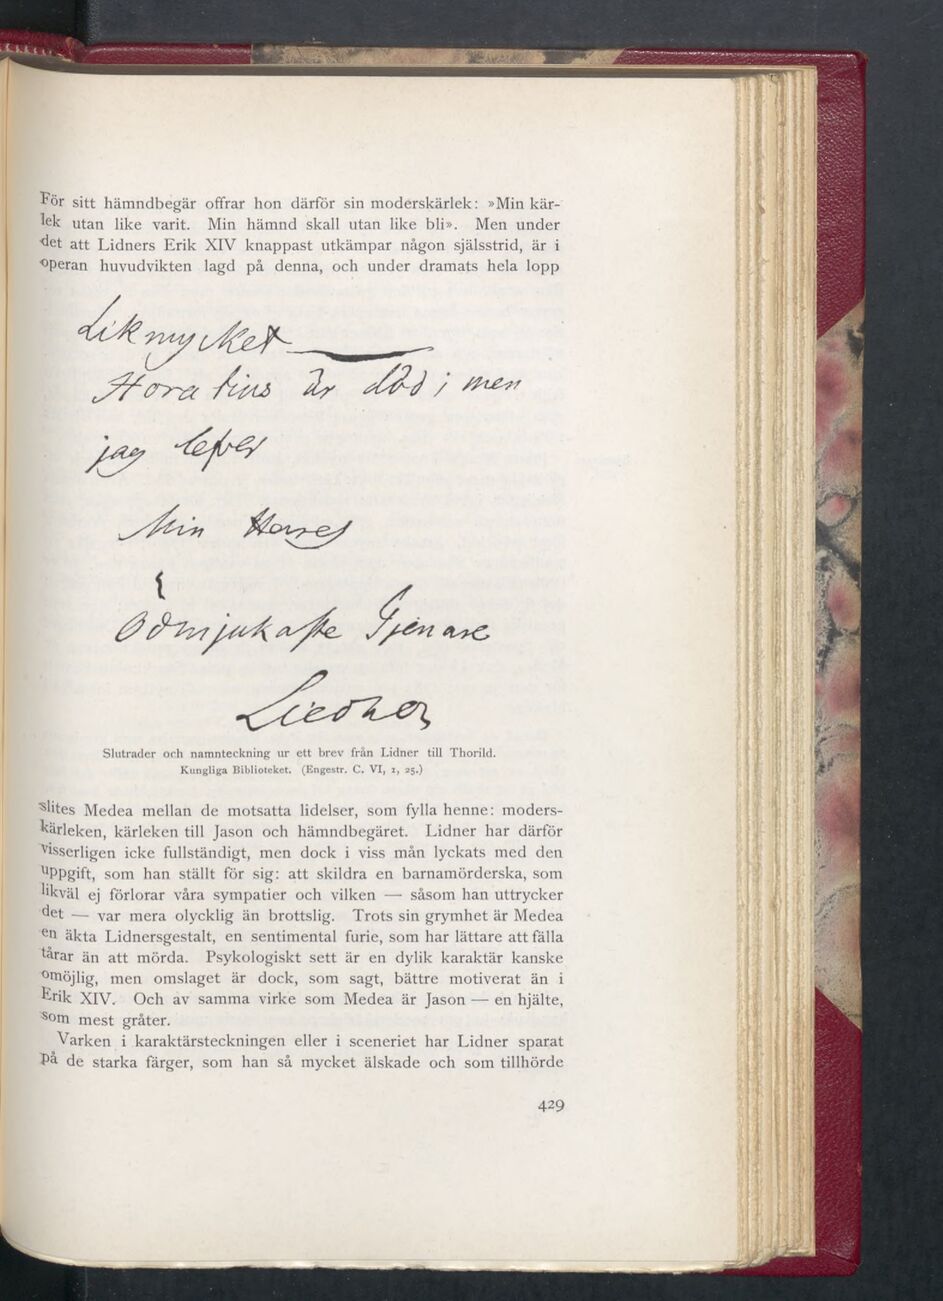 För sitt hämndbegär offrar hon därför sin moderskärlek: »Min kär-
lek utan like varit. Min hämnd skall utan like bli». Men under
det att Lidners Erik XIV knappast utkämpar någon själsstrid, är i
operan huvudvikten lagd på denna, och under dramats hela lopp
Lik mycket
Horatius är död; men
jag lefver
Min Herres
Ödmjukaste Tjenare
Liedner
Slutrader och namnteckning ur ett brev från Lidner till Thorild.
Kungliga Biblioteket. (Engestr. C. VI, 1, 25.)
slites Medea mellan de motsatta lidelser, som fylla henne: moders-
kärleken, kärleken till Jason och hämndbegäret. Lidner har därför
visserligen icke fullständigt, men dock i viss mån lyckats med den
uppgift, som han ställt för sig: att skildra en barnamörderska, som
likväl ej förlorar våra sympatier och vilken — såsom han uttrycker
det — var mera olycklig än brottslig. Trots sin grymhet är Medea
en äkta Lidnersgestalt, en sentimental furie, som har lättare att fälla
tårar än att mörda. Psykologiskt sett är en dylik karaktär kanske
omöjlig, men omslaget är dock, som sagt, bättre motiverat än i
Erik XIV. Och av samma virke som Medea är Jason — en hjälte,
som mest gråter.
Varken i karaktärsteckningen eller i sceneriet har Lidner sparat
på de starka färger, som han så mycket älskade och som tillhörde
429